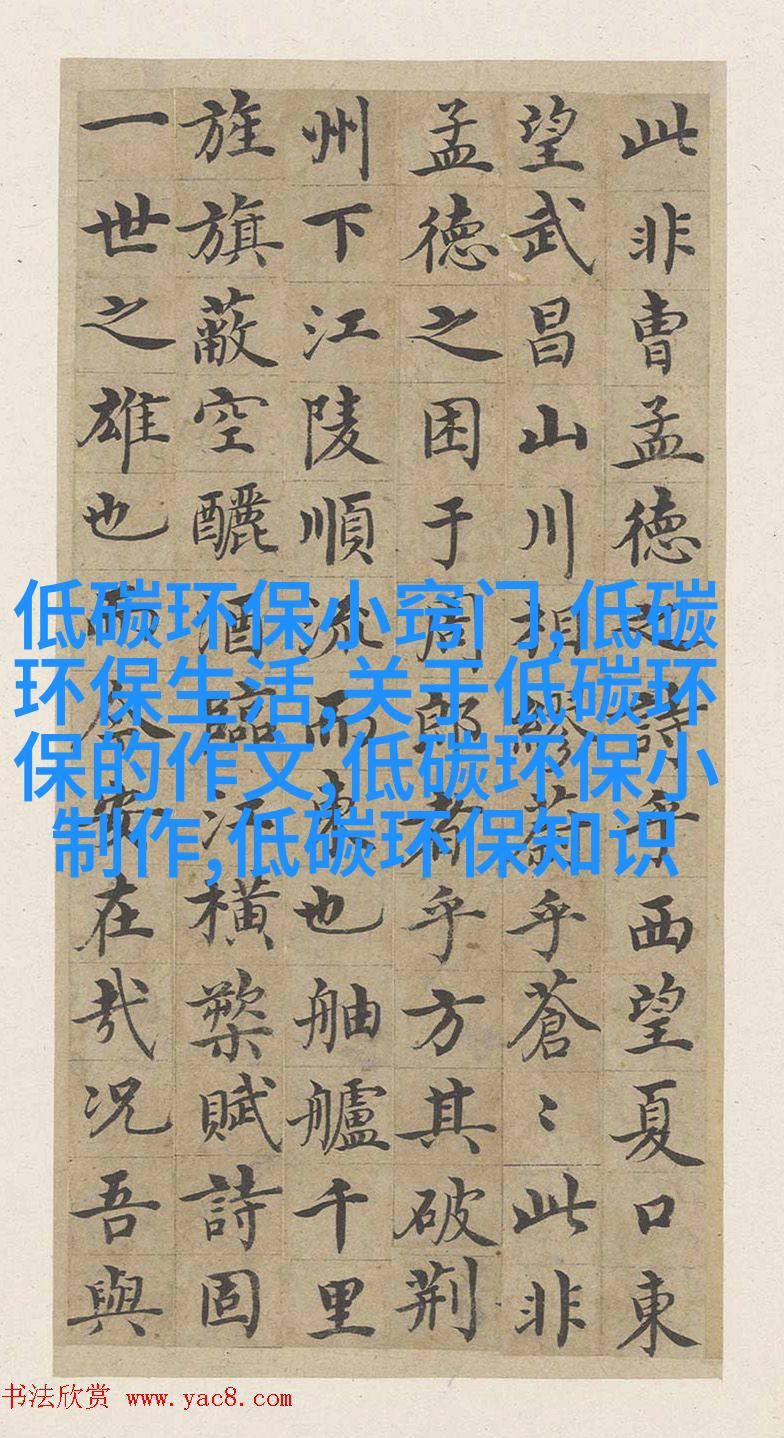 此非曹孟德之詩乎西望夏口東
望武昌山川相繆乎蒼〻此非
孟德之困于周郎者乎方其破荊
州下江陵順流而東也舳艫千里
旌旗蔽空釃酒臨江橫槊賦詩固
一世之雄也而今安在哉况吾與
低碳环保小窍门,低碳
环保生活,关于低碳环
保的作文,低碳环保小
制作,低碳环保知识
书法欣赏 www.yac8.com